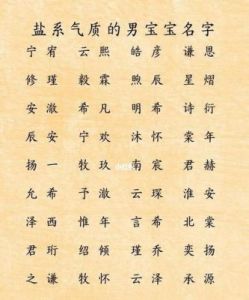 盐系气质的男宝宝名字
宁宥 云熙 皓彦 谦恩
修瑾 毅霖 煦辰 星熠
安澈 希凡 明希 诗衍
辰安 宁欢 沐怀 棠年
扬一 牧玖 南宸 君赫
允希 予澈 云琛 淮安
泽西 惟年 言希 北棠
君珩 绍倾 瑾乔 奕扬
之谦 牧怀 云泽 承源